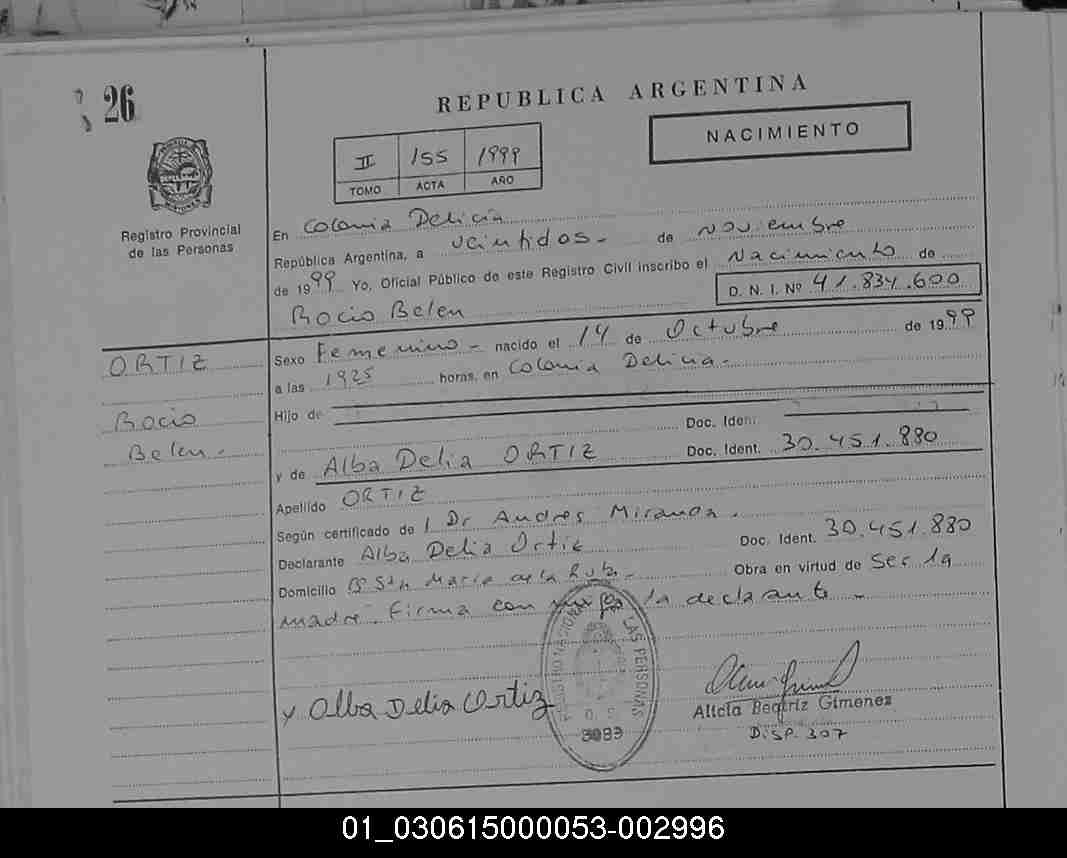 26
REPUBLICA ARGENTINA
NACIMIENTO
II 155 1999
TOMO ACTA AÑO
Registro Provincial
de las Personas
En Colonia Delicia
República Argentina, a veintidos.- de Noviembre
de 1999 Yo, Oficial Público de este Registro Civil inscribo el Nacimiento de
D. N. I. Nº 41.834.600
Rocio Belen
ORTIZ
Rocio
Belen.-
Sexo Femenino - nacido el 14 de Octubre de 1999
a las 1925 horas, en Colonia Delicia.-
Hijo de
Doc. Ident.
y de Alba Delia ORTIZ Doc. Ident. 30.451.880
Apellido ORTIZ
Según certificado de Dr Andres Miranda.
Declarante Alba Delia Ortiz Doc. Ident. 30.451.880
Domicilio Bº Sta Maria de la Obra en virtud de Ser la
madre. Firma con la declarante -
LAS PERSONAS
3083
Alba Delia Ortiz
Alicia Beatriz Gimenez
DISP. 307
01_030615000053-002996